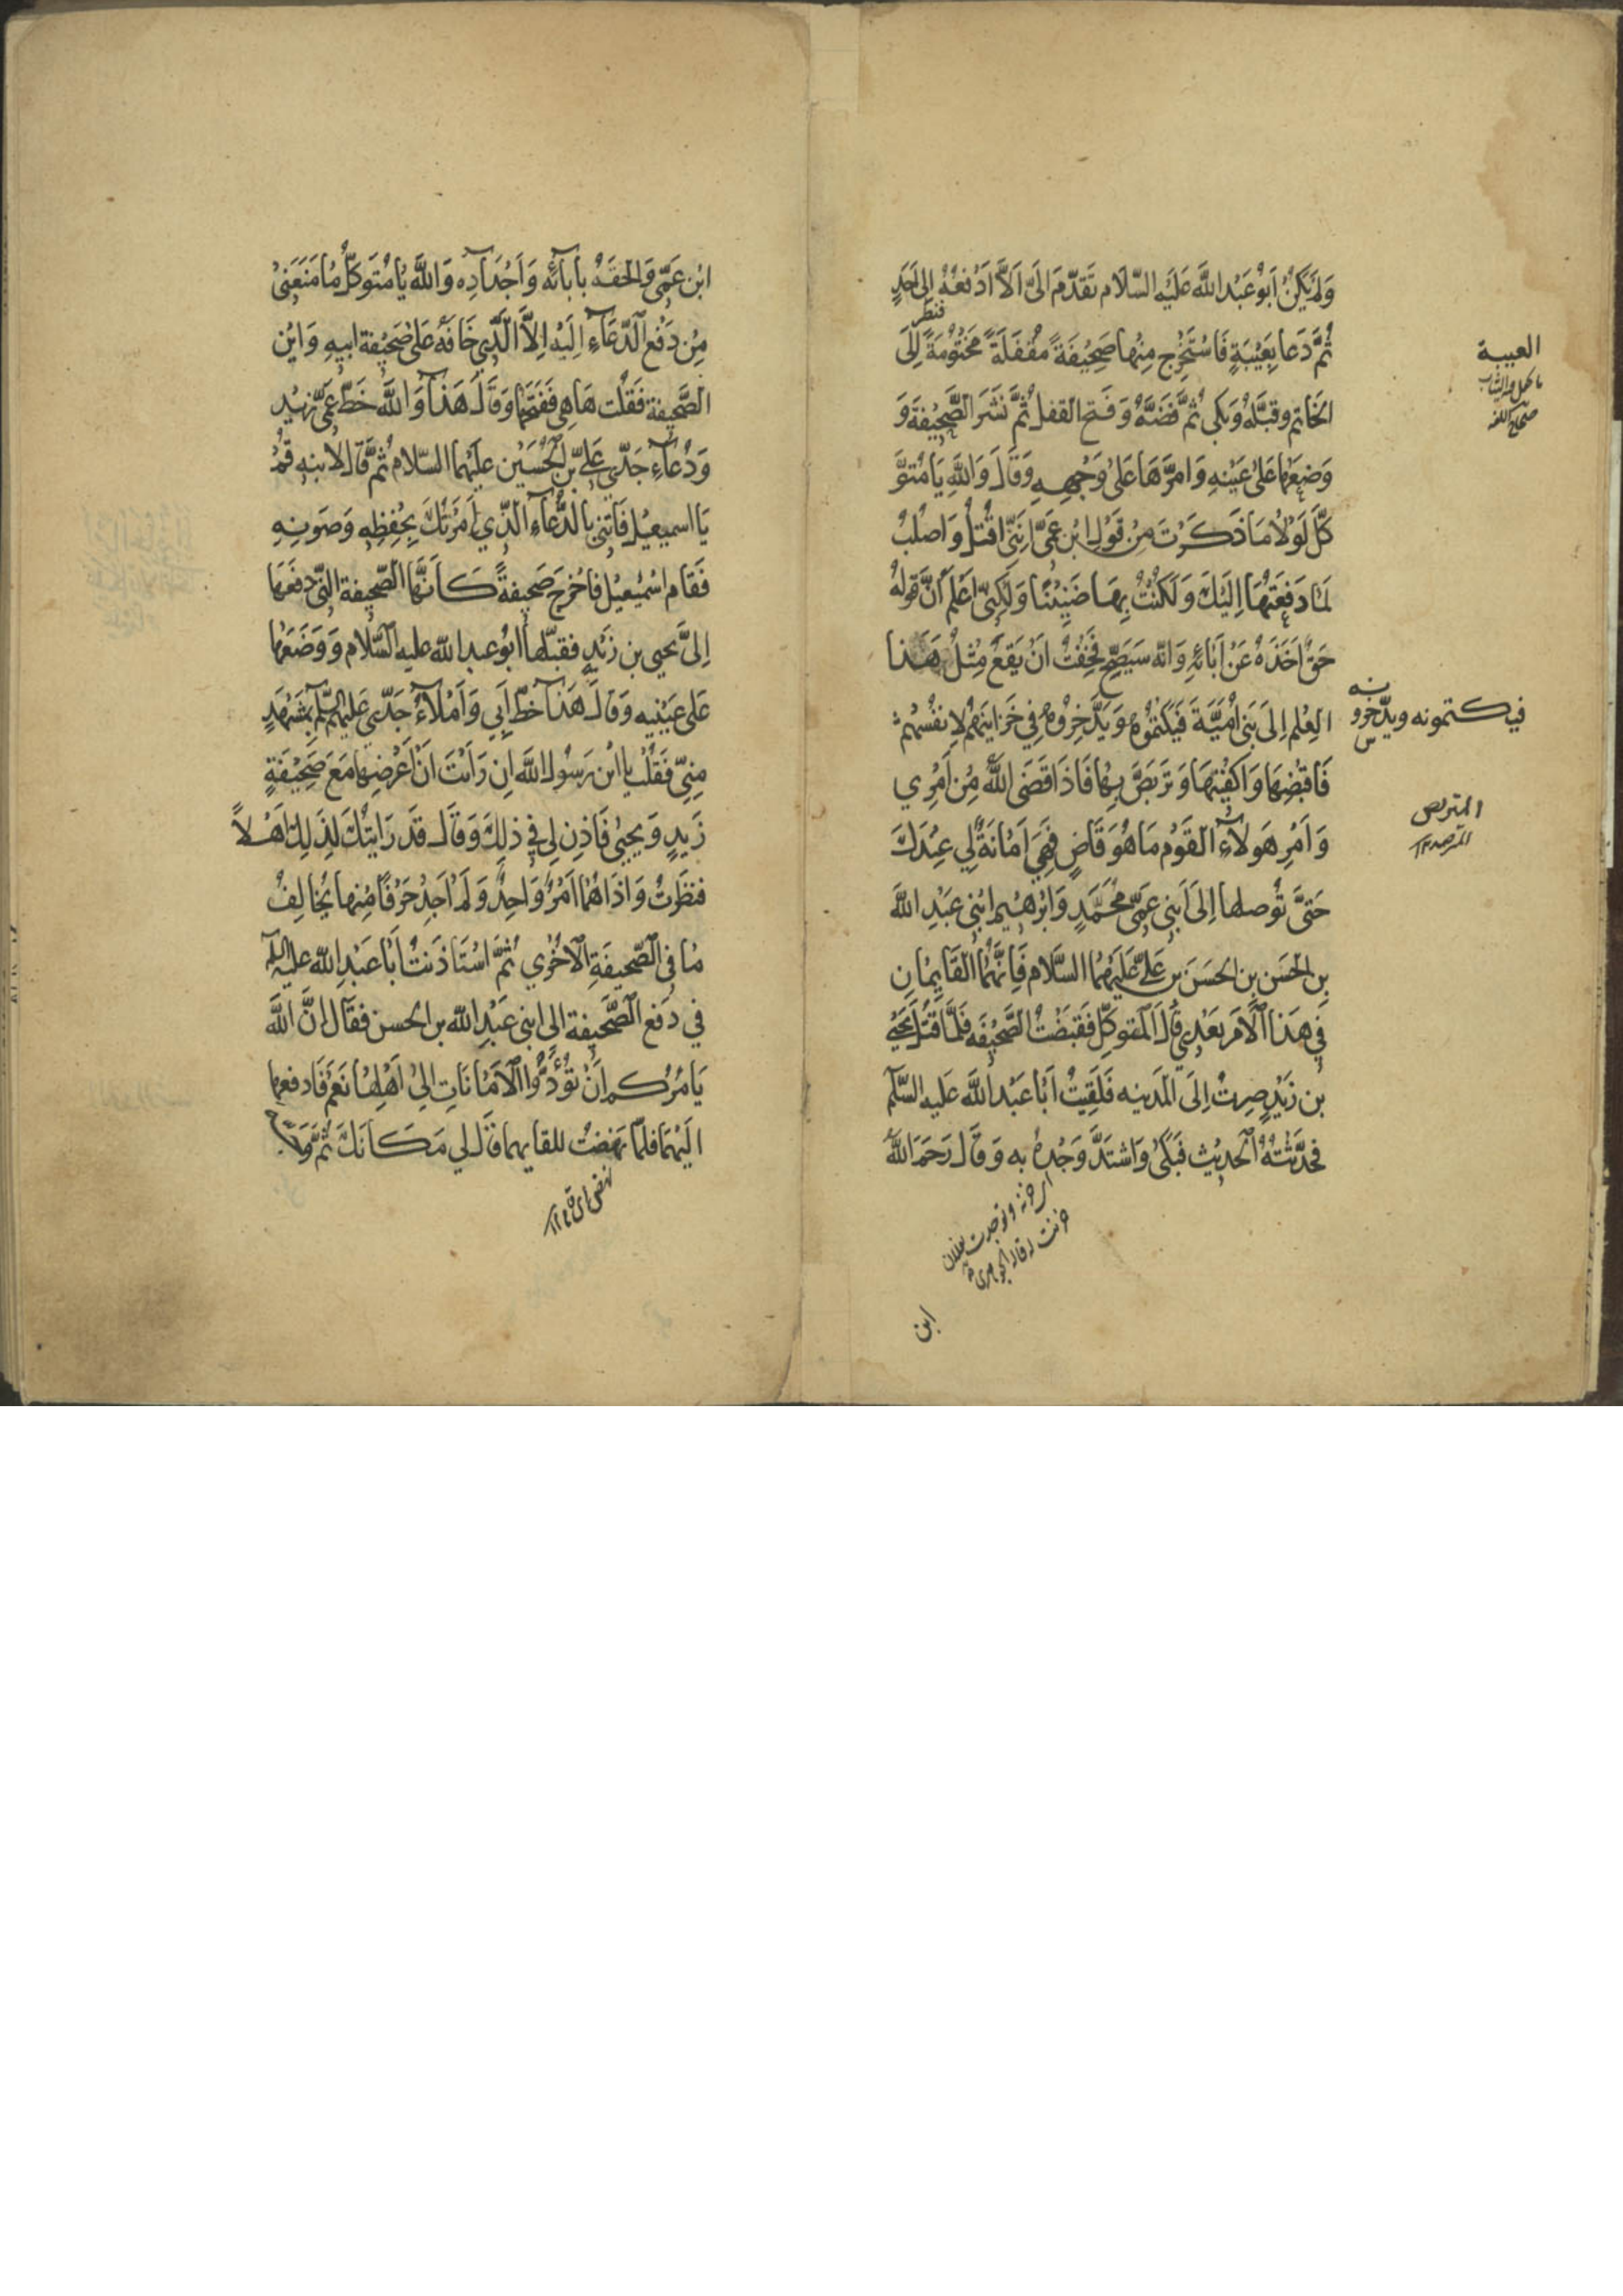 وَلَمْ يَكُنْ اَبُو عَبْدِ اللَّهِ عَلَيْهِ السَّلَام تَقَدَّمَ اِلَىَّ اَلَّا اَدْفَعَهُ اِلى اَحَدٍ
فنظر
ثُمَّ دَعَا بِعَيْبَةٍ فَاسْتَخْرَج مِنْهَا صَحِيفَةً مُقْفَلَةً مَخْتُومَةً اِلَى
الخَاتم وقبَّلَهُ وَبَكى ثُمَّ فَضَّهُ وَفَتح القفل ثُمَّ نَشَرَ الصَّحِيْفَة وَ
وَضَعَهَا عَلى عَيْنِهِ وَاَمَرَّهَا عَلى وَجْهِهِ وَقَالَ وَاللَّهِ يَا مُتَوَّ
كِّلُ لَوْلا مَا ذَكَرْتَ مِنْ قَوْلِ ابْنِ عَمّى اِنَّنِى اُقْتَلُ وَاُصْلَبُ
لَمَا دَفَعْتُهَا اِلَيْكَ وَلَكُنْتُ بِهَا ضَنِيْنًا وَلَكِنّى اَعْلَم اَنَّ قَولَهُ
حَقٌّ اَخَذَهُ عَنْ ابَائِهِ وَانّه سَيَصِحّ فَخِفْتُ اَنْ يَقَعَ مِثْلُ هَذا
العِلْم اِلَى بَنى اُمَيَّةَ فَيَكْتُمُوهُ وَيَدَّخِرُوهُ فِي خَزَائِنِهِمْ لِاَنْفُسِهِمْ
فَاقْبِضْهَا وَاكْفِنِيْهَا وَتَرَبَّصْ بِهَا فَاذَا قَضَى اللَّهُ مِنْ اَمْرِي
وَاَمْرِ هَولَآءِ القَوْم مَا هُوَ قَاضٍ فَهِىَ اَمَانَةٌ لِي عِنْدَكَ
حَتىَّ تُوصلها اِلىَ ابْنَى عَمِّى مُحَمَّدٍ وَاِبْرهِيمَ ابْنَى عَبْدِ اللَّهِ
بنِ الحَسَن بنِ الحَسَنَ بن عَلىٍّ عَلَيْهِمَا السَّلَام فَاِنَّهُمَا القَايِمَانِ
فِي هَذَا الاَمرَ بَعْدِي قَالَ المُتَوكِّل فَقَبَضْتُ الصَّحِيْفَه فَلَمَّا قُتِلَ يَحْيَى
بن زَيْدٍ صِرتُ اِلَى المَدينه فَلَقِيْتُ اَبَا عَبْدِ اللَّهِ عَلَيهِ السَّلَم
فحَدَّثْتُهُ الْحَدِيْث فَبَكى وَاشتَدَّ وَجْدُهُ به وَقَال رَحَمَ اللَّهُ
ابن
العيبة
صحاح اللغه
فيكتمونه ويدّخرو
نه
المتربص
ابْن عَمِّى وَالحَقَهُ بابَآئِه وَاَجْدَادِه وَاللَّهِ يَا مُتَوَكّلُ مَا مَنَعَنِى
مِن دَفْعِ الدُّعَآءِ اِلَيْهِ اِلَّا الَّذِي خَافَهُ عَلى صَحِيْفة ابيهِ وَاَيْنَ
الصَّحيفة فَقُلْت هَاهِى فَفَتَحَهَا وَقَالَ هَذَا وَاللَّهِ خَطُّ عَمّى زيدٍ
وَدُعَآءِ جَدِّى عَلىِّ بن الْحُسَيْن علَيْهِمَا السَّلام ثُمَّ قَالَ لابنه قُمْ
يَا اسمعيْل فَاتِنِى بِالدُّعَآءِ الَّذِي اَمَرْتُكَ بِحِفْظِهِ وَصَونِهِ
فَقَام اسْمعِيْل فاَخْرَجَ صَحِيفةً كَاَنَّهَا الصَّحِيفة الَّتى دفَعَهَا
اِلىَّ يَحيى بن زَيْدٍ فقبّلهَا ابُو عبدِ الله عليه السَّلَام وَوَضَعَهَا
عَلى عَيْنيه وَقَالَ هَذا خطّ اَبِي وَاِمْلَآءُ جَدِّى عَلَيهِمَا السَّلَم بِمَشْهَدٍ
مِنِّى فَقُلْتُ يا ابْن رَسُول اللَّه اِن رَايتَ اَن اَعْرِضها مَعَ صَحِيْفَةِ
زَيدٍ وَيحيى فَاَذِن لِي في ذلِكَ وَقَالَ قَد رَايتُكَ لِذَلِكَ اَهْلاً
فنظَرتُ وَاِذَا هُمَا اَمْرٌ وَاحِدٌ وَلَمْ اَجِدْ حَرْفًا مِنها يُخَالِفُ
مَا في الصَّحِيفَةِ الاُخْرِي ثُمَّ اسْتَاذَنتُ اَبَا عَبْدِ اللَّه عليه السلم
في دَفع الصَّحيفة الى ابنى عَبْدِ اللَّه بن الحسن فقَال اِنَّ اللَّهَ
يَامُرُكم اَنْ تُؤَدُّوا الاَمَانَاتِ اِلى اَهْلِهَا نَعَم فَادفعها
اليْهِمَا فلمّا نهَضتُ للقايهما قَالَ لي مَكَانَكَ ثُمَّ وَجَّهَ